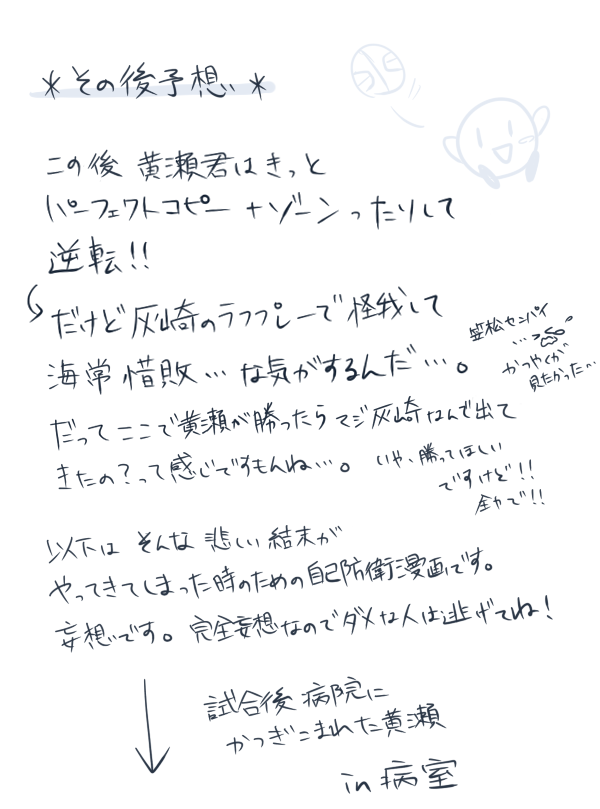 *その後予想*
この後 黄瀬君はきっと
パーフェクトコピー+ゾーンったりして
逆転!!
だけど灰崎のラフプレーで怪我して
海常 惜敗… な気がするんだ…。
笠松センパイ
…
かつやくが
見たかった…
だってここで黄瀬が勝ったらマジ灰崎なんで出て
きたの?って感じですもんね…。
いや、勝ってほしい
ですけど!!
全力で!!
以下は そんな 悲しい 結末が
やってきてしまった時のための自己防衛漫画です。
妄想です。完全妄想なのでダメな人は逃げてね!
試合後 病院に
かつぎこまれた黄瀬
in 病室